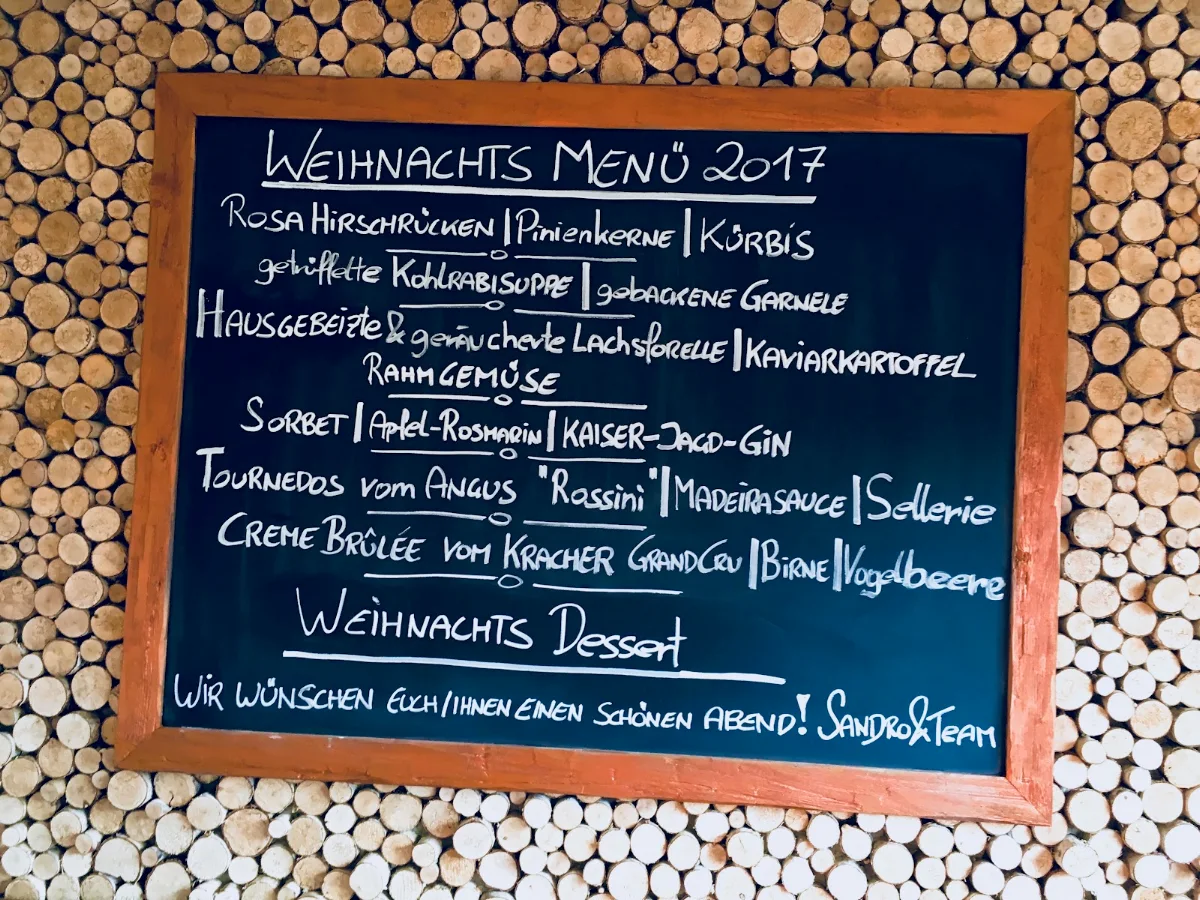 WEIHNACHTS MENÜ 2017
ROSA HIRSCHRÜCKEN | Pinienkerne | KÜRBIS
getrüffelte KohlRABISUPPE | gebackene GARNELE
HAUSGEBEIZTE & geräucherte LACHSFORELLE | KAVIARKARTOFFEL
RAHMGEMÜSE
SORBET | Apfel-ROSMARIN | KAISER-JAGD-GIN
TOURNEDOS vom ANGUS "Rossini" | MADEIRASAUCE | Sellerie
CREME BRÛLÉE VOM KRACHER GRAND CRU | BIRNE | Vogelbeere
WEIHNACHTS Dessert
WIR WÜNSCHEN EUCH/IHNEN EINEN SCHÖNEN ABEND! SANDRO & TEAM